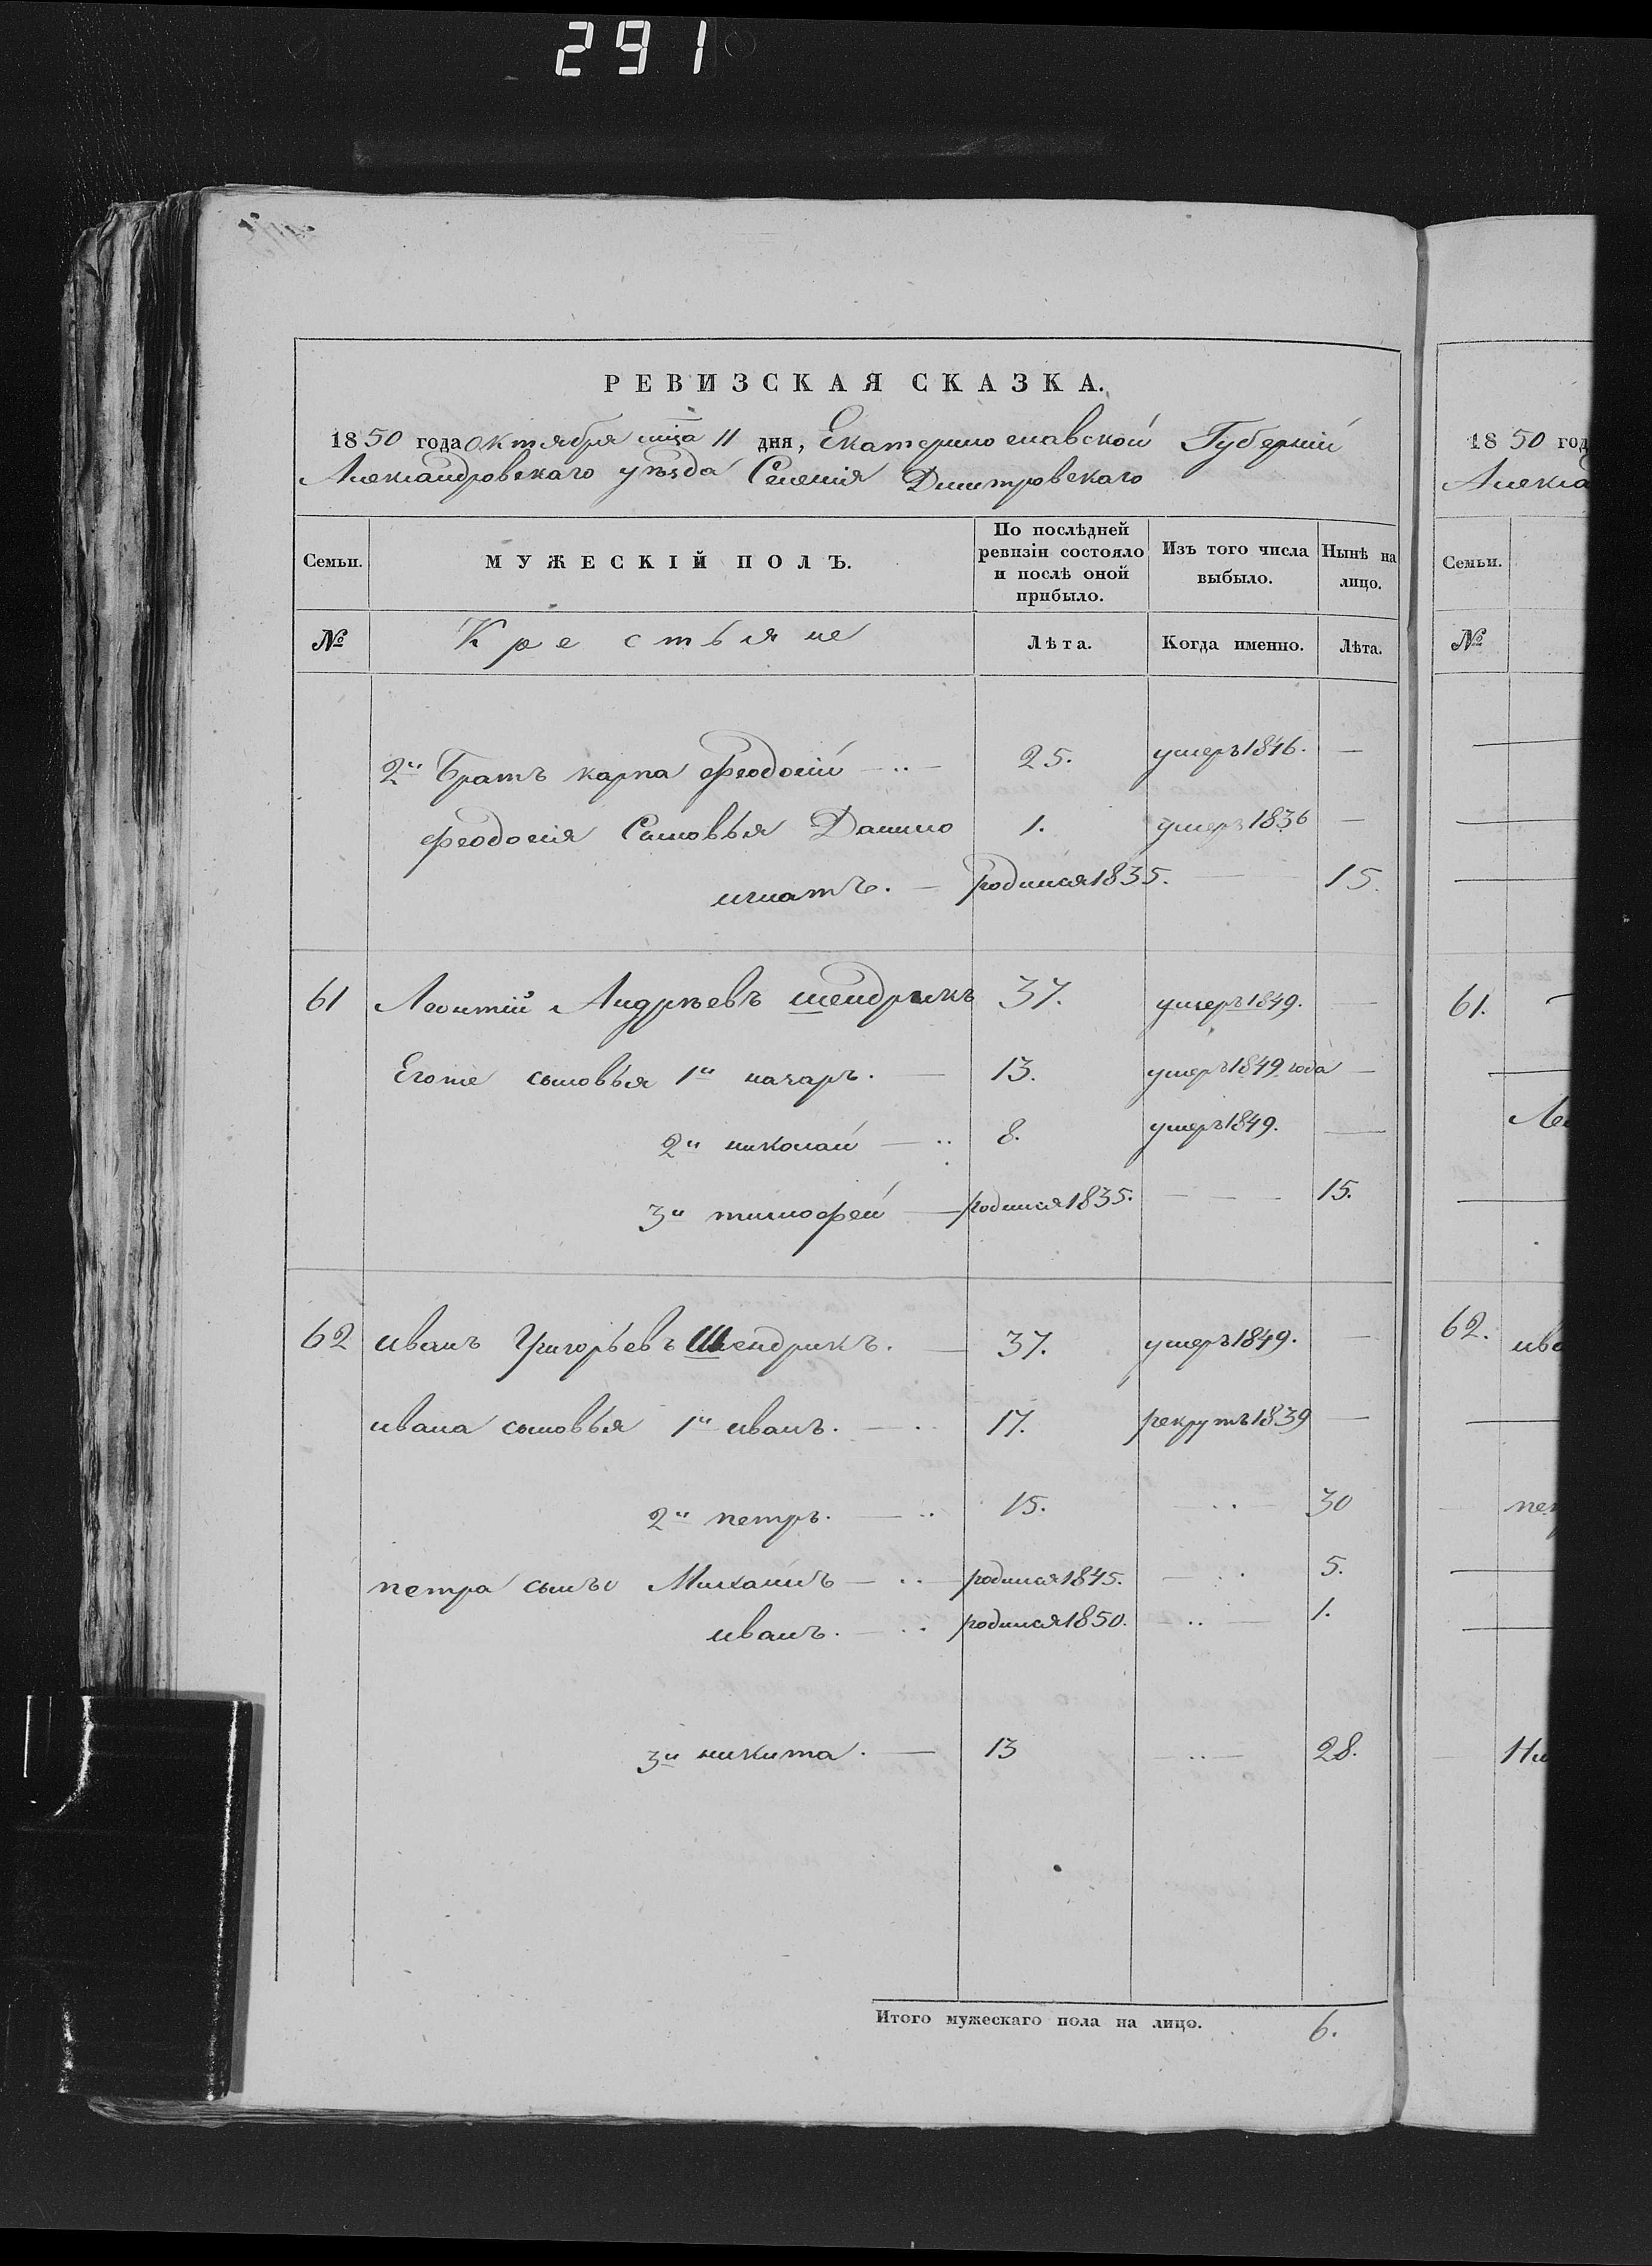 291
РЕВИЗСКАЯ СКАЗКА.
1850 года октября мца 11 дня, Екатеринославской Губерніи
Александровскаго уѣзда Селенія Дмитровскаго
Семьи.
МУЖЕСКІЙ ПОЛЪ.
По послѣдней ревизіи состояло и послѣ оной прибыло.
Изъ того числа выбыло.
Нынѣ на лицо.
№ Крестьяне Лѣта. Когда именно. Лѣта.
2й Братъ карпа феодосій 25. умеръ 1846. —
феодосія Сыновья Данило 1. умеръ 1836 —
игнатъ. — родился 1835. — 15.
61 Леонтій Андреевъ шендрикъ 37. умеръ 1849. —
Егоже сыновья 1й назаръ. — 13. умеръ 1849 года —
2й николай — 8. умеръ 1849. —
3й тимофей — родился 1835. — 15.
62 иванъ Григорьевъ Шендрикъ. — 37. умеръ 1849. —
ивана сыновья 1й иванъ. — 17. рекрутъ 1839 —
2й петръ. — 15. — 30
петра сынъ Михаилъ — родился 1845. — 5.
иванъ. — родился 1850. — 1.
3й никита. — 13 — 28.
Итого мужескаго пола на лицо. 6.
1850 год
Алекса
Семьи.
№
61.
Ле
62. ива
пет
Ни